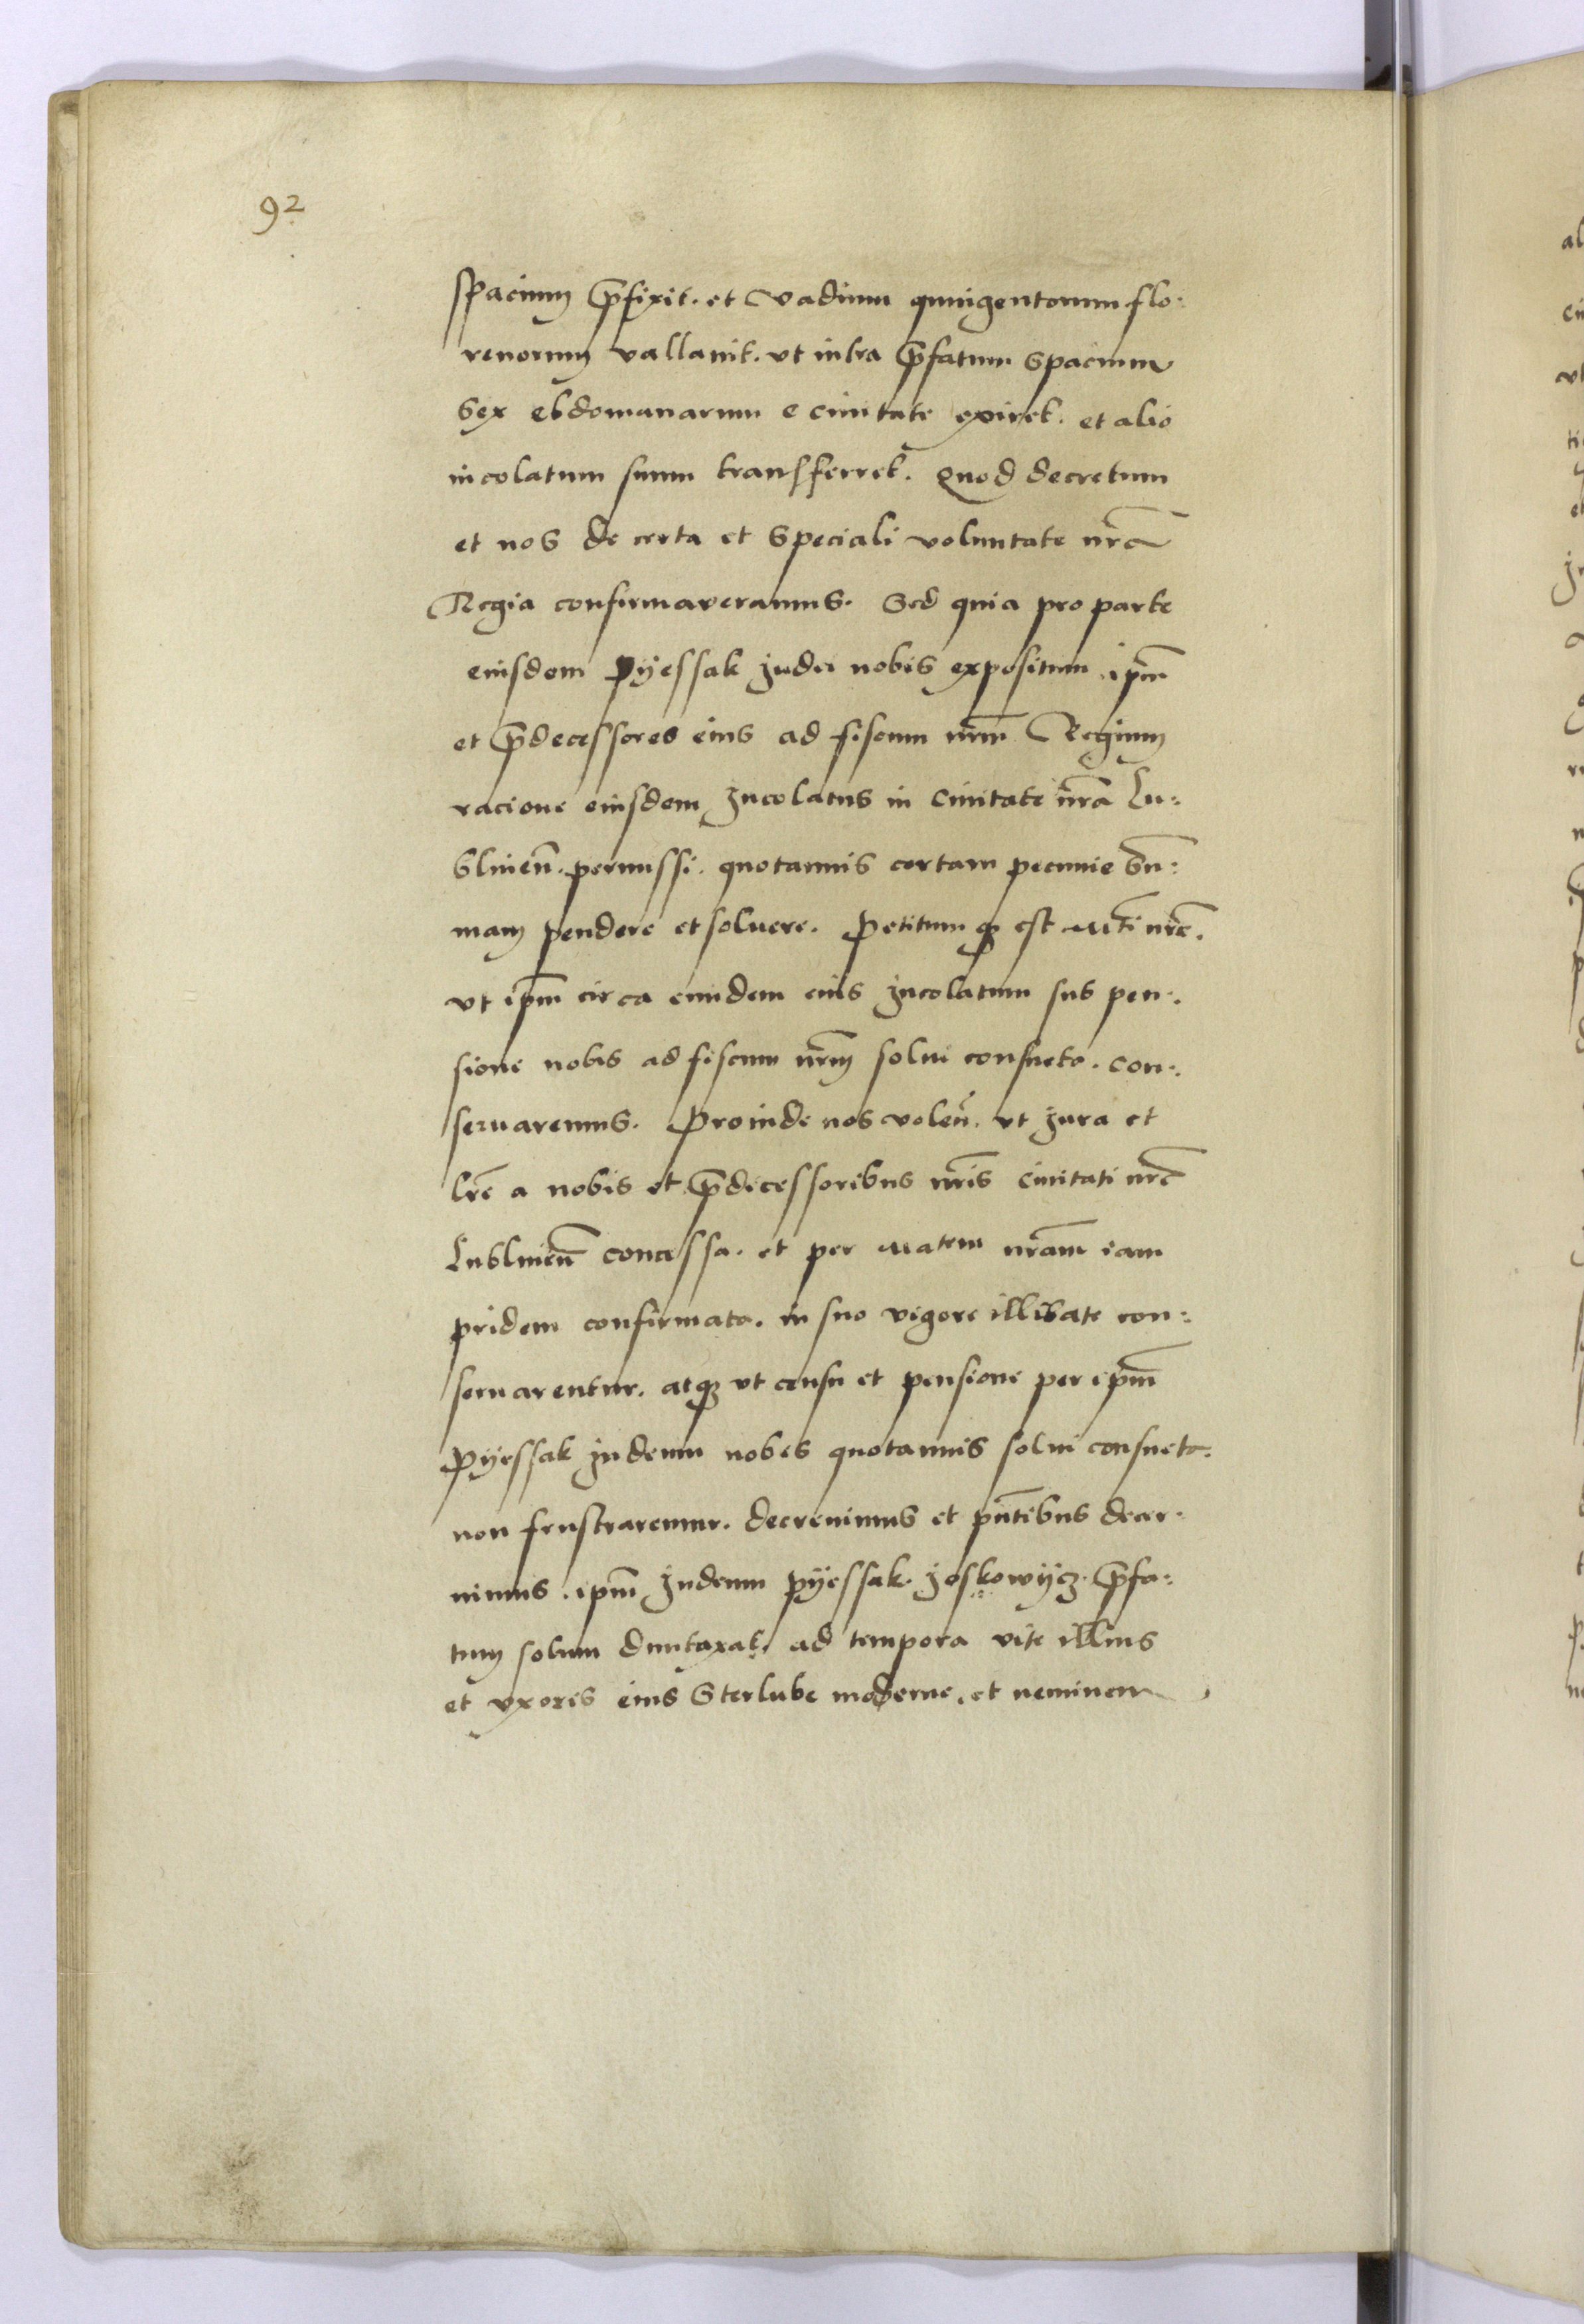 92
spacium p̄fixit. et vadium quingentorum flo:
renorum vallauit. vt intra p̄fatum spacium
sex ebdomanarum e ciuitate exiret. et alio
incolatum suum transferret. Quod decretum
et nos de certa et speciali voluntate nr̄a
Regia confirmaveramus. Sed quia pro parte
eiusdem Pÿessak Judei nobis expositum ip̄m
et p̄decessores eius ad fiscum nr̄m Regium
racione eiusdem Incolatus in ciuitate nr̄a Lu:
blinen̄. permissi. quotannis certam pecunie su̅:
mam pendere et soluere. Petitumqȝ est Mti nr̄e.
vt ip̄m circa eundem eius Incolatum sub pen:
sione nobis ad fiscum nr̄m solui consueta. con:
seruaremus. Proinde nos volen̄. vt Jura et
lr̄e a nobis et p̄decessoribus nr̄is ciuitati nr̄e
Lublinen̄ concessa. et per Matem nr̄am iam
pridem confirmata. in suo vigore illibate con:
seruarentur. atqȝ vt censu et pensione per ip̄m
Pÿessak Judeum nobis quotannis solui consueta.
non frustraremur. decreuimus et pn̄tibus decer:
nimus. ip̄m Judeum Pÿessak. Joskowÿcz. p̄fa:
tum solum duntaxat. ad tempora vite illius
et vxoris eius Sterlube moderne. et neminem